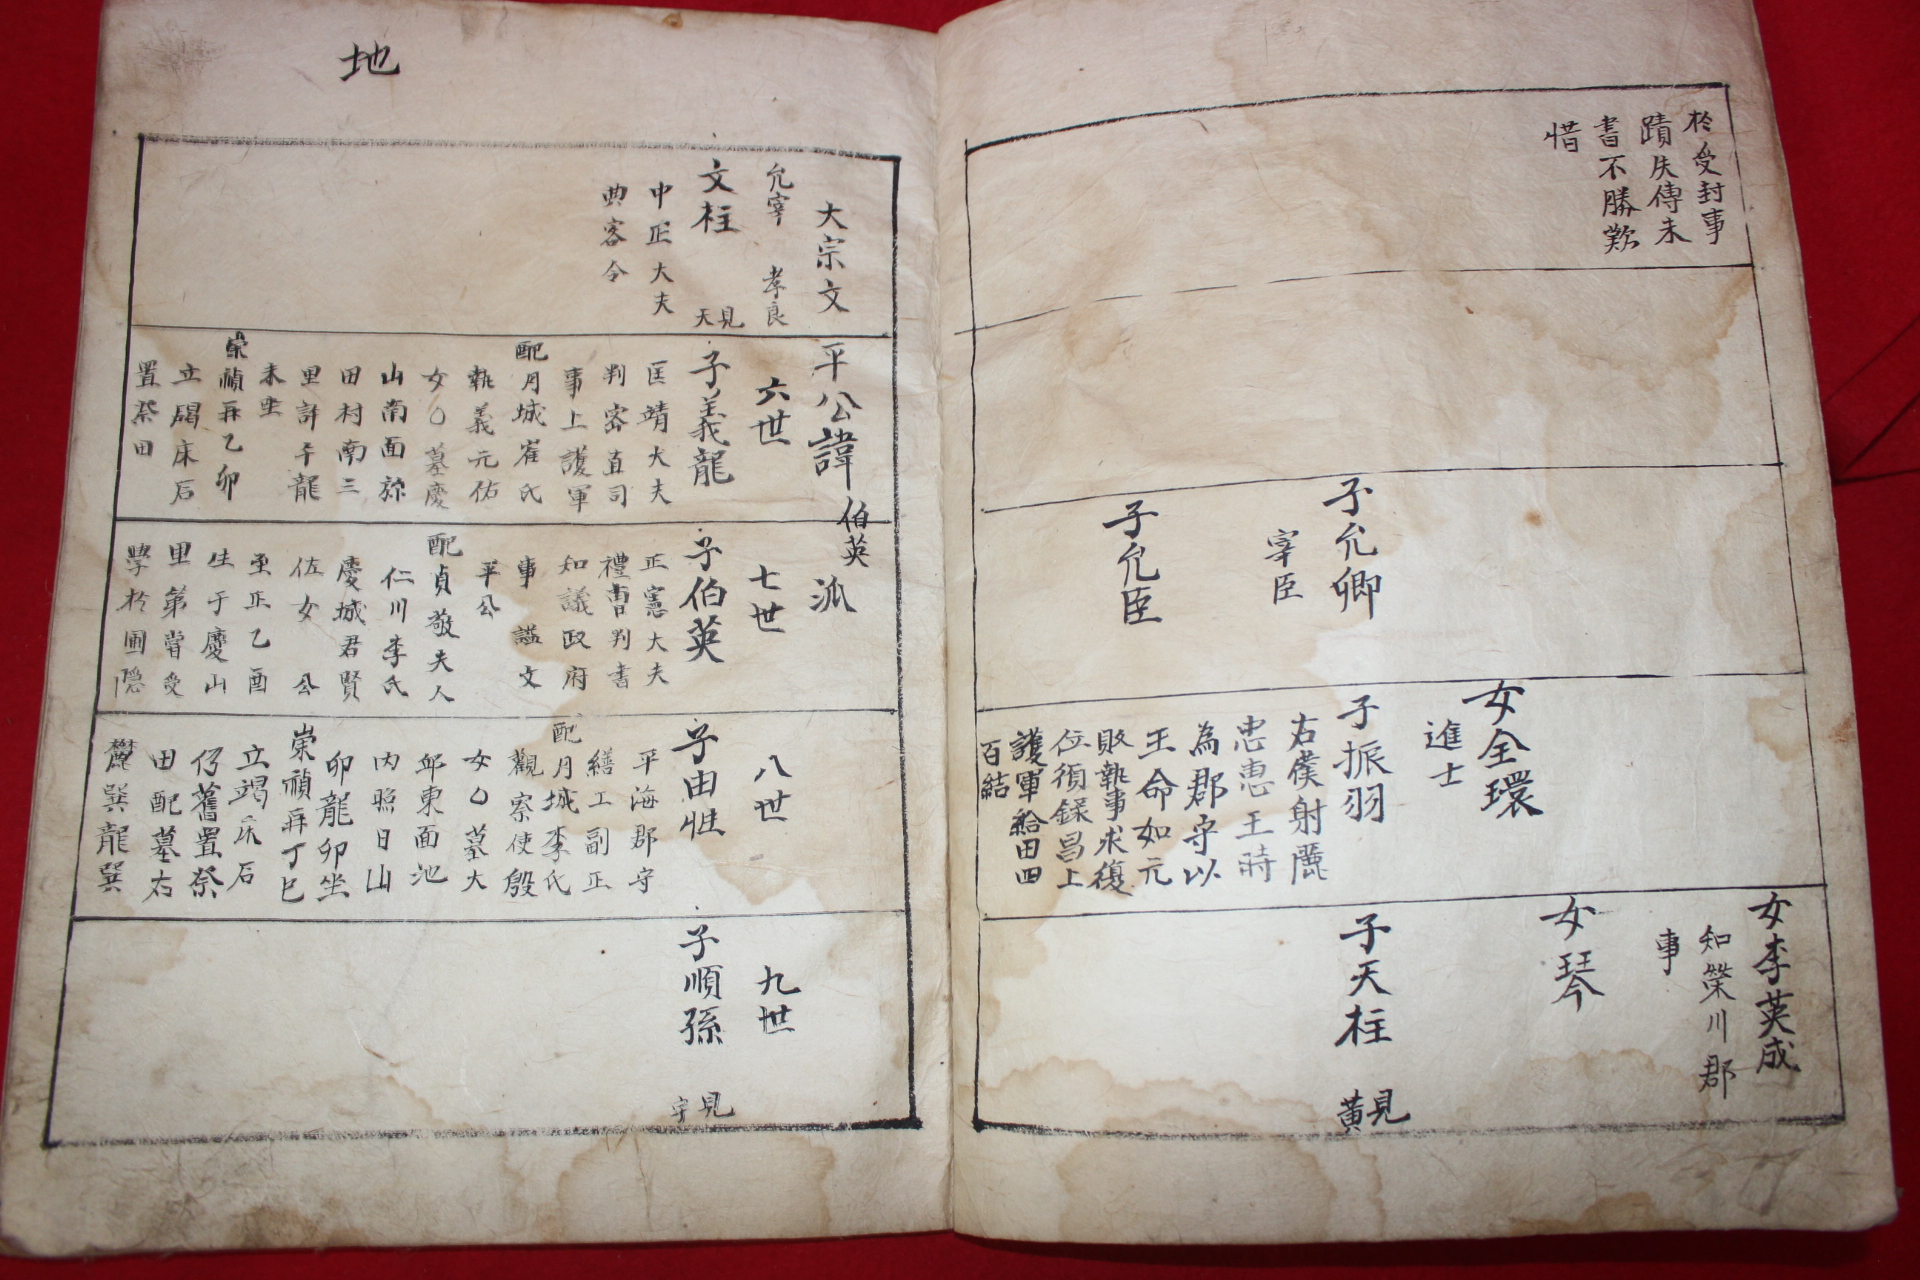 於受封事
蹟失傳未
書不勝歎
惜
子允卿
宰臣
子允臣
女全環
進士
子振羽
右僕射麗
忠惠王時
為郡守以
王命如元
敗執事求復
位須錄昌上
護軍給田四
百結
女李英成
知榮川郡
事
女琴
子天柱
見
黃
地
大宗文
平公諱
伯英
派
允宰
孝良
文柱
見
天
中正大夫
典客令
六世
子義龍
匡靖大夫
判客直司
事上護軍
配月城崔氏
執義元佑
女〇墓慶
山南面
田村南三
里許午龍
未坐
崇禎再乙卯
立碣床石
置祭田
七世
子伯英
正憲大夫
禮曹判書
知議政府
事謚文
平公
配貞敬夫人
仁川李氏
慶城君賢
佐女公
至正乙酉
生于慶山
里第嘗受
學於圃隱
八世
子由性
平海郡守
繕工副正
配月城李氏
觀察使殷
女〇墓大
邱東面池
內照日山
卯龍卯坐
崇禎再丁巳
立碣床石
仍舊置祭
田配墓右
麓巽龍巽
九世
子順孫
見
宇